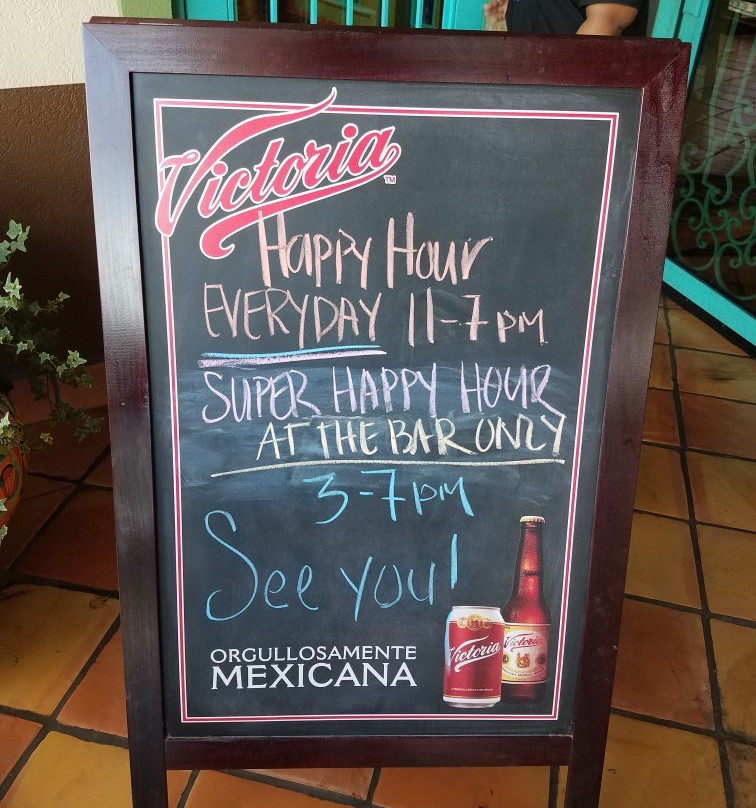 Victoria TM
Happy Hour
EVERYDAY 11-7pm
SUPER HAPPY HOUR
AT THE BAR ONLY
3-7pm
See you!
ORGULLOSAMENTE
MEXICANA
Victoria
Victoria